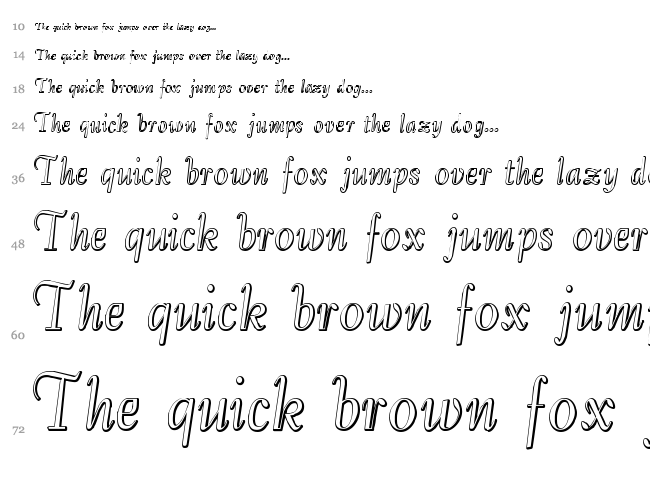 10 The quick brown fox jumps over the lazy dog...
14 The quick brown fox jumps over the lazy dog...
18 The quick brown fox jumps over the lazy dog...
24 The quick brown fox jumps over the lazy dog...
36 The quick brown fox jumps over the lazy d
48 The quick brown fox jumps over
60 The quick brown fox jum
72 The quick brown fox